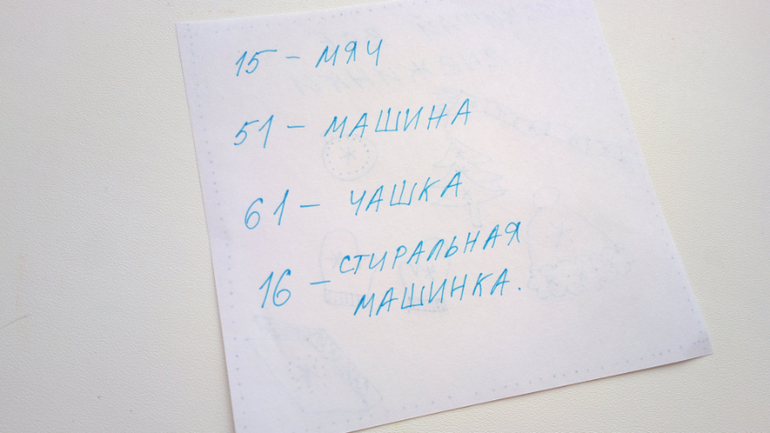 15 – МЯЧ
51 – МАШИНА
61 – ЧАШКА
16 – СТИРАЛЬНАЯ
МАШИНКА.